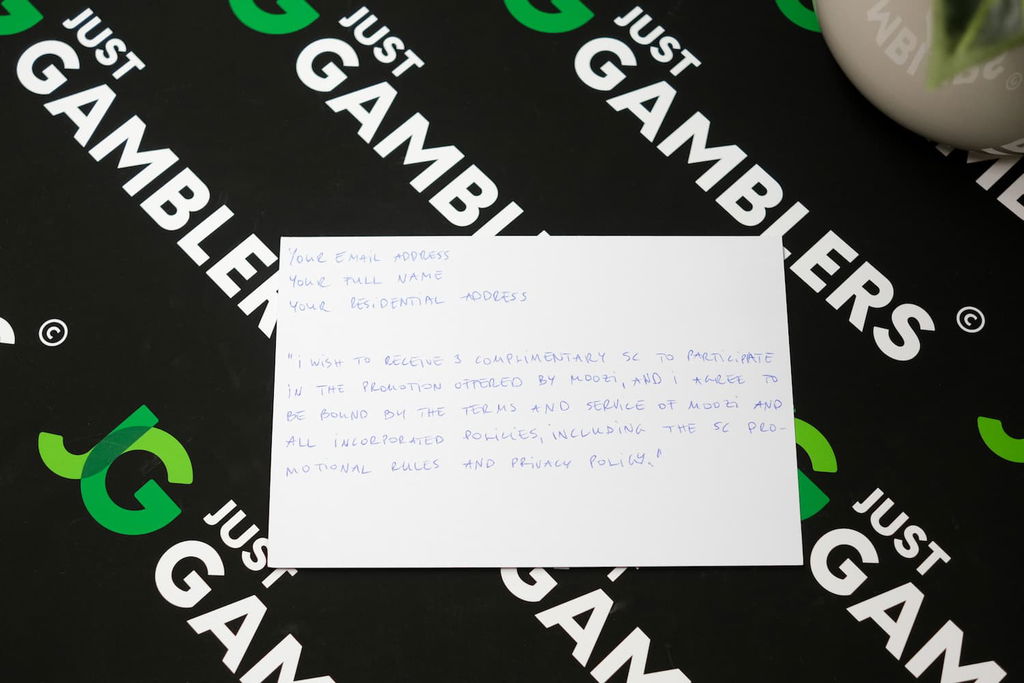 JUST
GAMBLERS
JUST
GAMBLERS
JUST
GAMBLERS ©
©
YOUR EMAIL ADDRESS
YOUR FULL NAME
YOUR RESIDENTIAL ADDRESS
"I WISH TO RECEIVE 3 COMPLIMENTARY SC TO PARTICIPATE
IN THE PROMOTION OFFERED BY MOOZI, AND I AGREE TO
BE BOUND BY THE TERMS AND SERVICE OF MOOZI AND
ALL INCORPORATED POLICIES, INCLUDING THE SC PRO-
MOTIONAL RULES AND PRIVACY POLICY."
JG
JUST
GAM
GAM
JUST
GAM